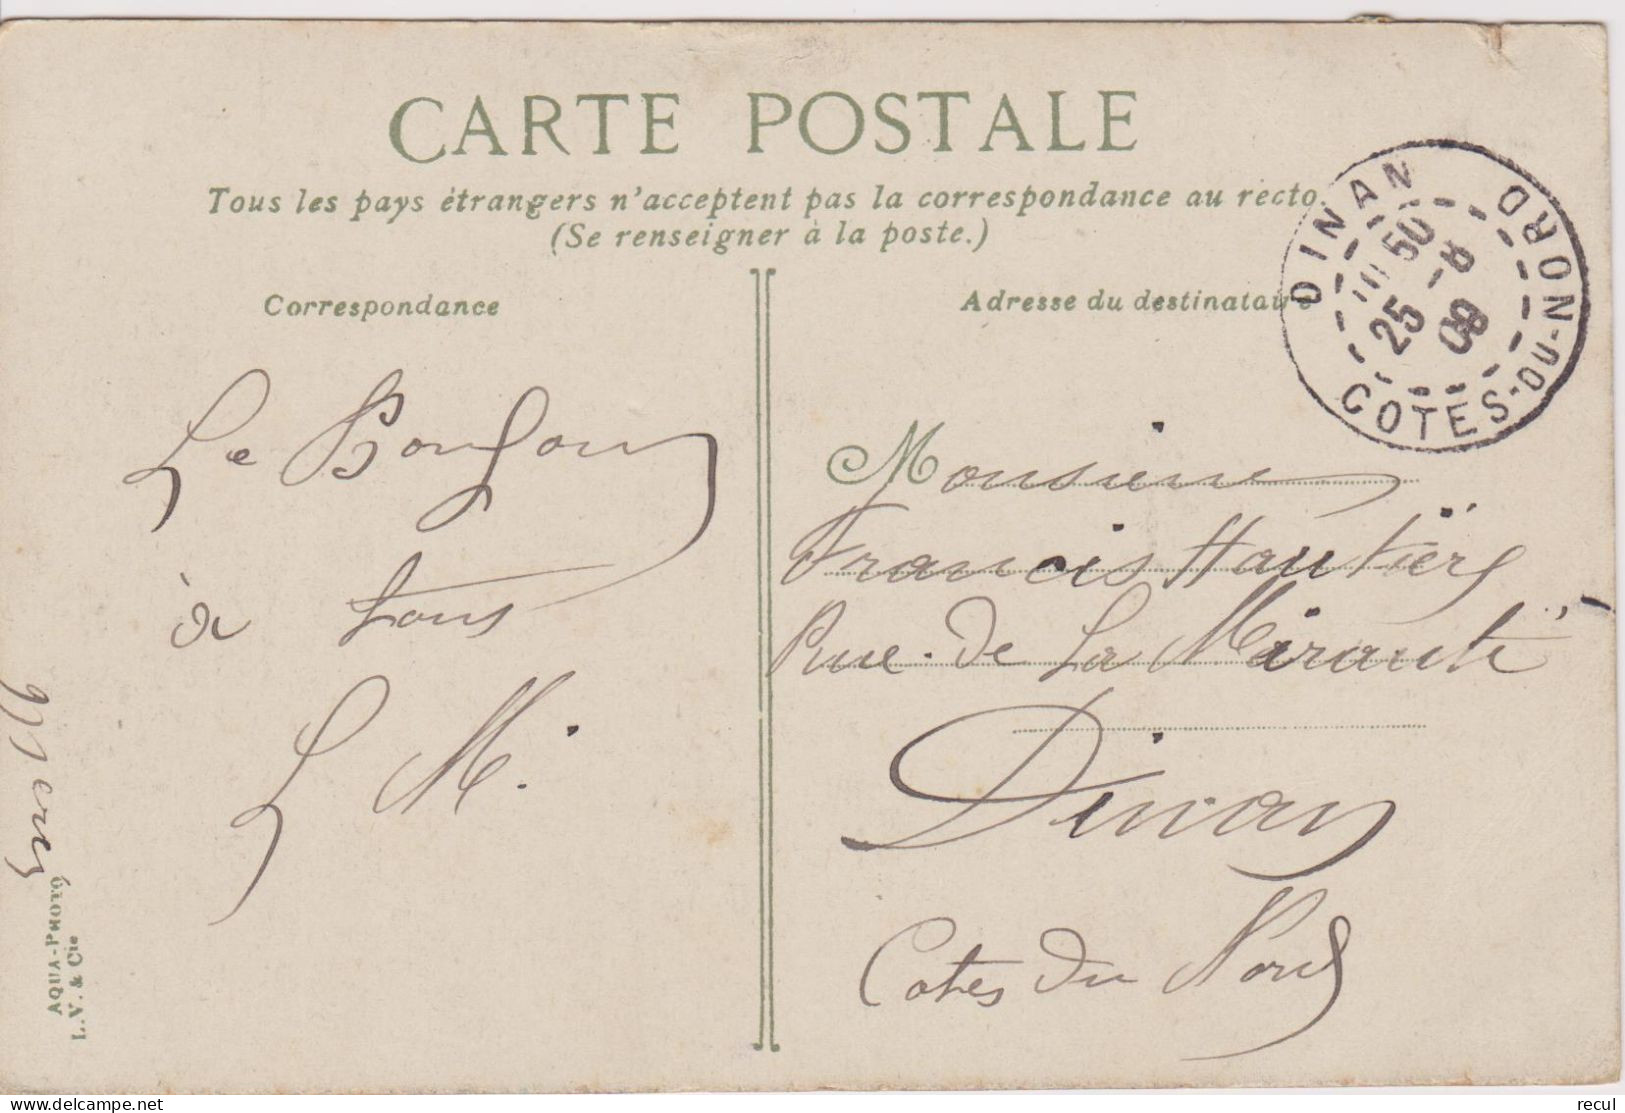 CARTE POSTALE
Tous les pays étrangers n'acceptent pas la correspondance au recto.
(Se renseigner à la poste.)
Correspondance
Le Bonjour
à tous
L M.
AQUA-PHOTO
L.V. & Cie
Adresse du destinataire
Monsieur
Francis Hautiers
Rue de La
Dinan
Cotes du Nord
DINAN
COTES-DU-NORD
50
25 -8
09
delcampe.net
recul